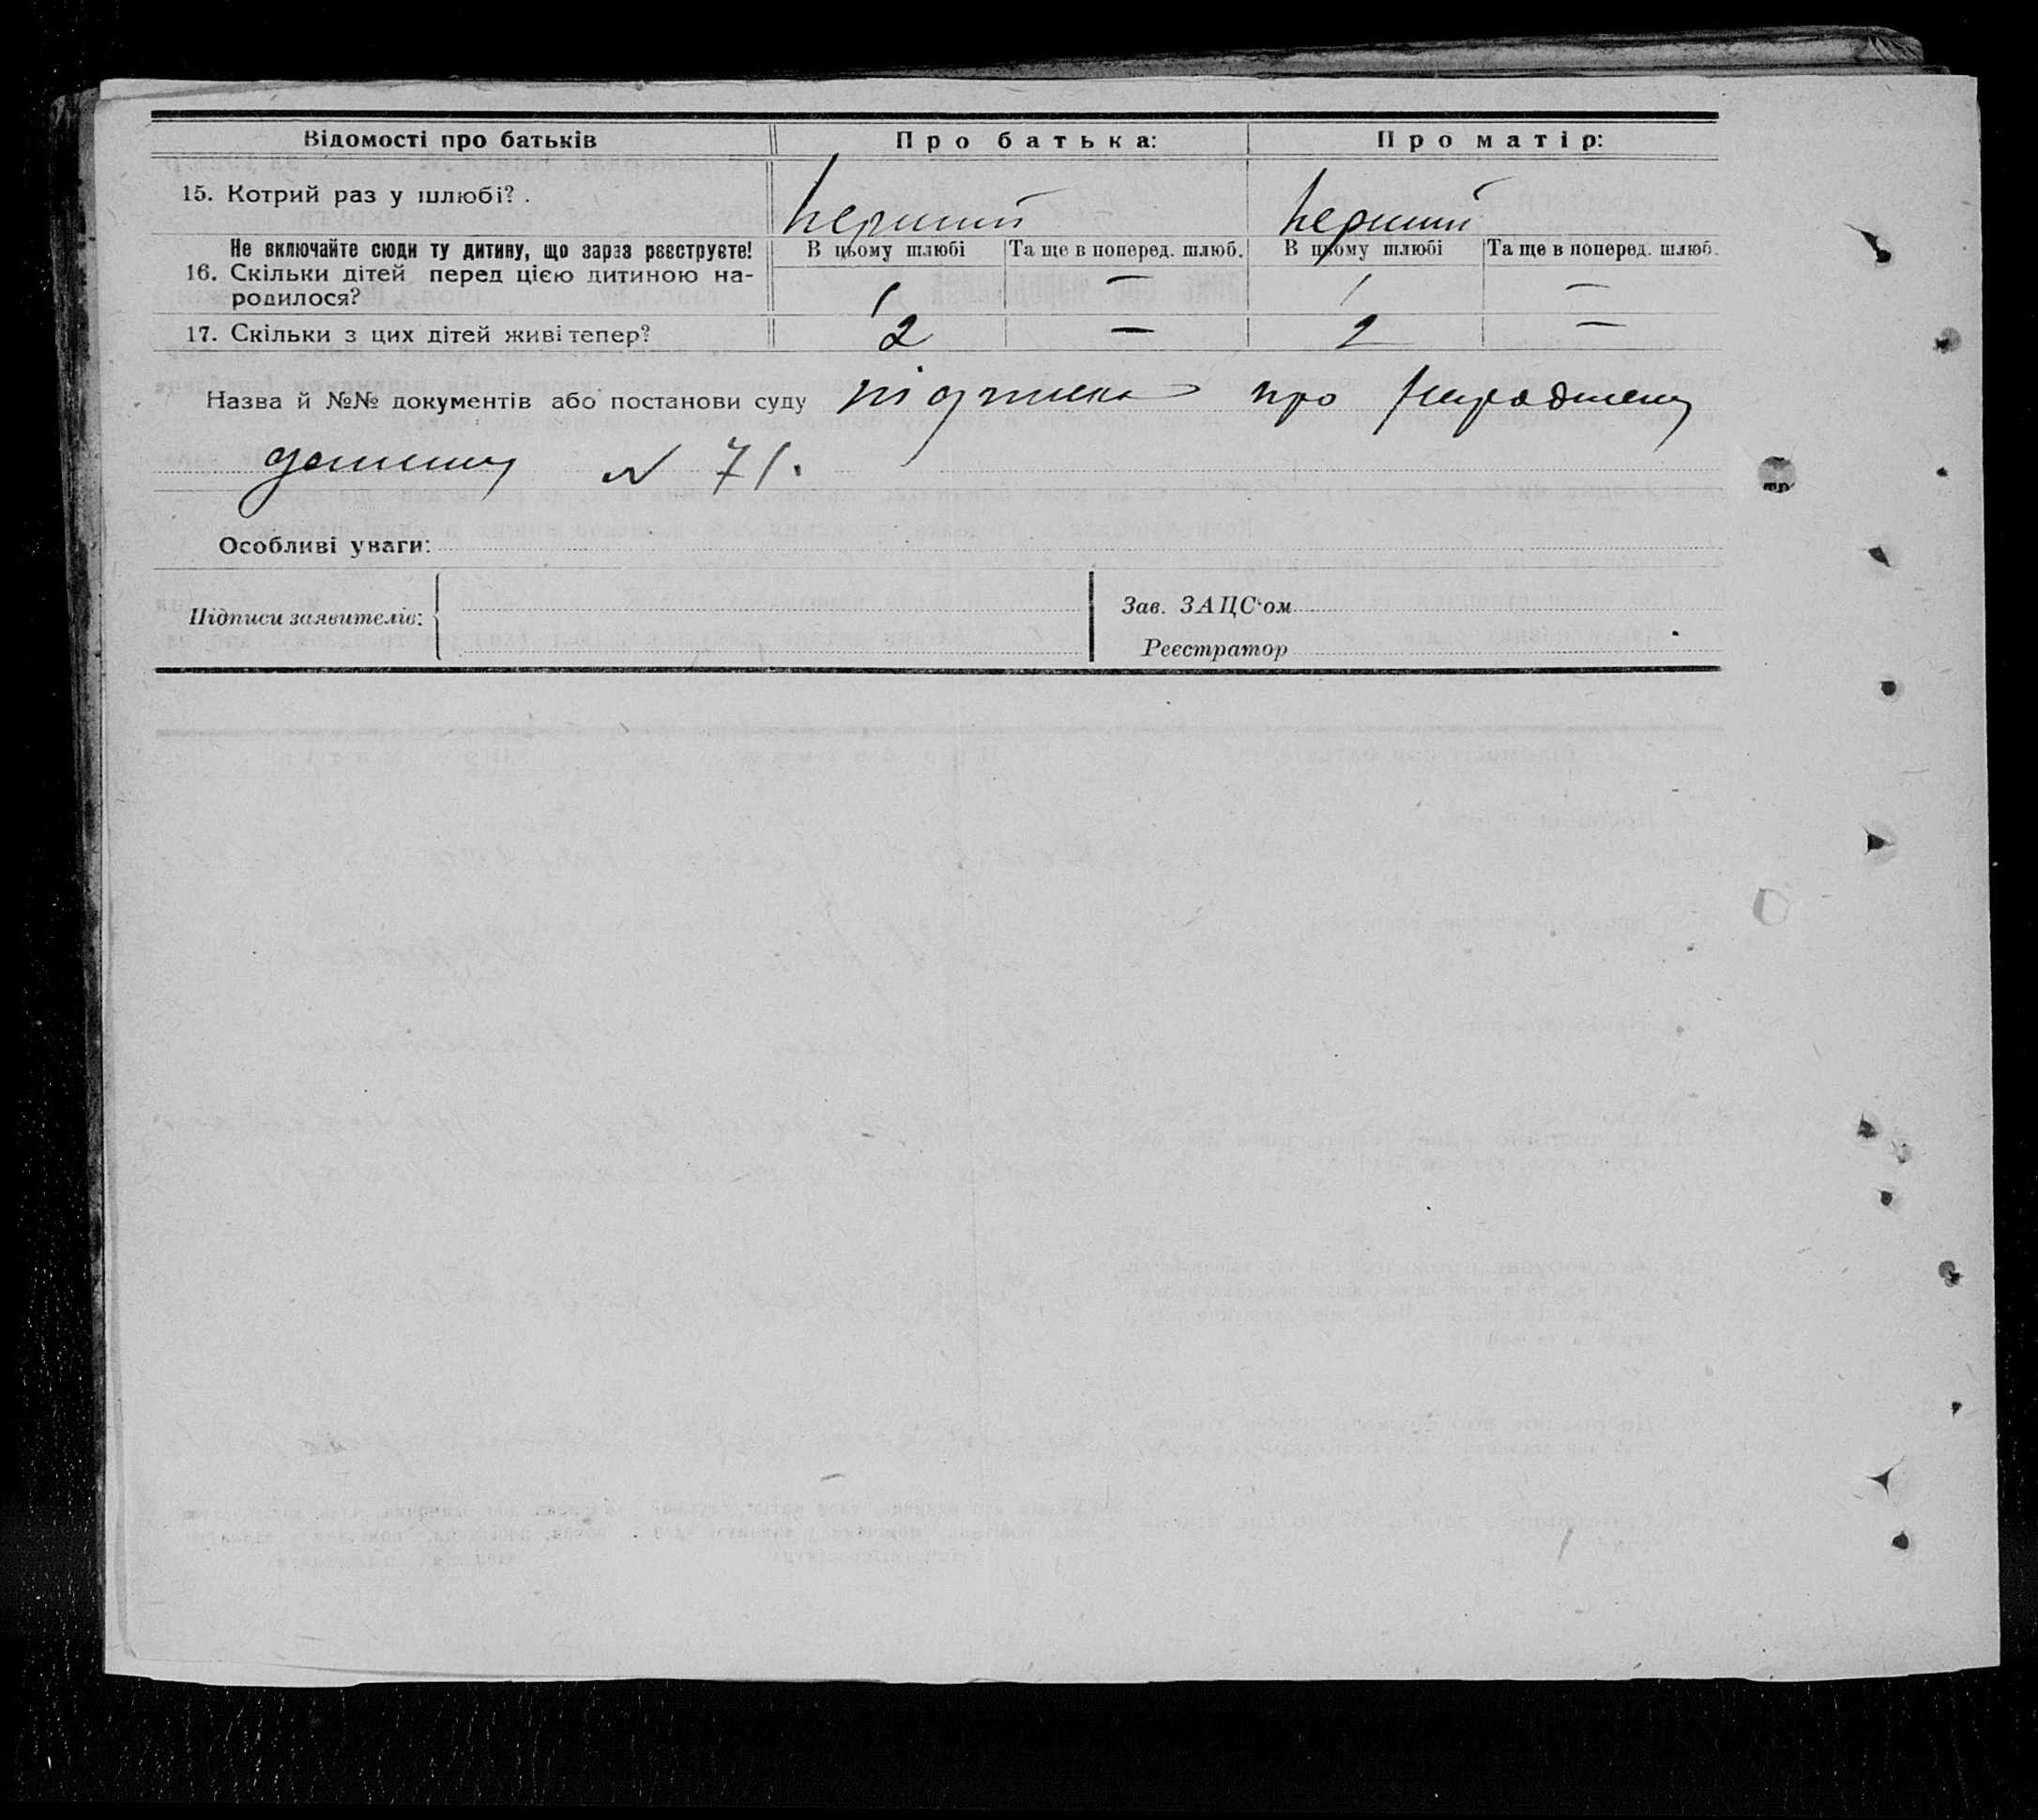 Відомості про батьків Про батька: Про матір:
15. Котрий раз у шлюбі? . перший перший
Не включайте сюди ту дитину, що зараз реєструєте! В цьому шлюбі Та ще в поперед. шлюб. В цьому шлюбі Та ще в поперед. шлюб.
16. Скільки дітей перед цією дитиною на-
родилося? 1 — 1 —
17. Скільки з цих дітей живі тепер? 2 — 2 —
Назва й №№ документів або постанови суду підписка про
дитину N 71.
Особливі уваги:
Підписи заявителів: Зав. ЗАЦС'ом
Реєстратор